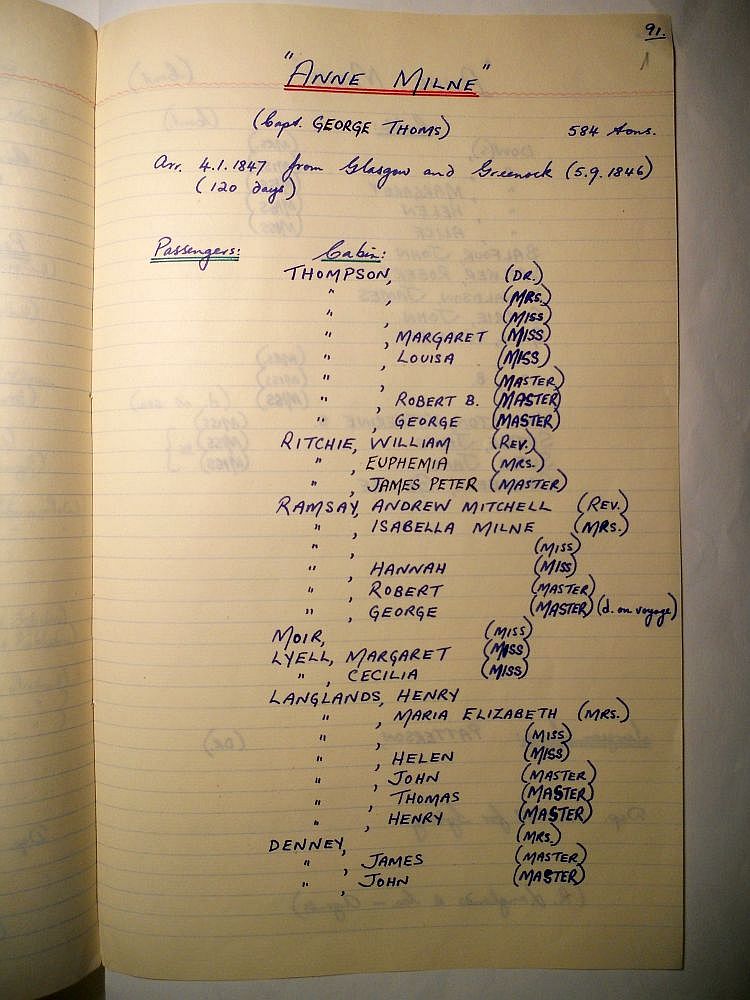 91.
"ANNE MILNE"
(Capt. GEORGE THOMS) 584 tons.
Arr. 4.1.1847 from Glasgow and Greenock (5.9.1846)
(120 days)
Passengers: Cabin:
THOMPSON, (DR.)
" , (MRS.)
" , (MISS)
" , MARGARET (MISS)
" , LOUISA (MISS)
" , (MASTER)
" , ROBERT B. (MASTER)
" , GEORGE (MASTER)
RITCHIE, WILLIAM (REV.)
" , EUPHEMIA (MRS.)
" , JAMES PETER (MASTER)
RAMSAY, ANDREW MITCHELL (REV.)
" , ISABELLA MILNE (MRS.)
" , (MISS)
" , HANNAH (MISS)
" , ROBERT (MASTER)
" , GEORGE (MASTER) (d. on voyage)
MOIR, (MISS)
LYELL, MARGARET (MISS)
" , CECILIA (MISS)
LANGLANDS, HENRY
" , MARIA ELIZABETH (MRS.)
" , (MISS)
" , HELEN (MISS)
" , JOHN (MASTER)
" , THOMAS (MASTER)
" , HENRY (MASTER)
DENNEY, (MRS.)
" , JAMES (MASTER)
" , JOHN (MASTER)